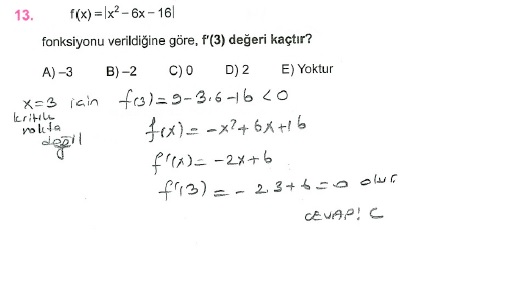 13. f(x) = |x² – 6x – 16|
fonksiyonu verildiğine göre, f'(3) değeri kaçtır?
A) –3 B) –2 C) 0 D) 2 E) Yoktur
x=3 için f(3)=9-3.6-16<0
kritik
nokta
değil
f(x)=-x²+6x+16
f'(x)=-2x+6
f'(3)=-2.3+6=0 olur.
CEVAP: C